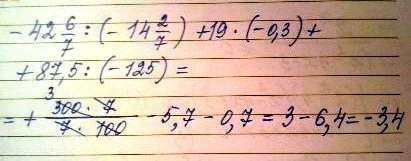 -42 6/7 : (-14 2/7) + 19 · (-0,3) +
+ 87,5 : (-125) =
= + (300 · 7)/(7 · 100) - 5,7 - 0,7 = 3 - 6,4 = -3,4
3